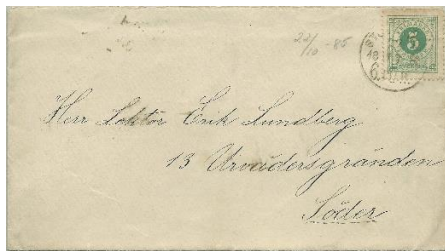 22/10 -85
5
Herr Doktor Erik Lundberg
13 Urvädersgränden
Söder